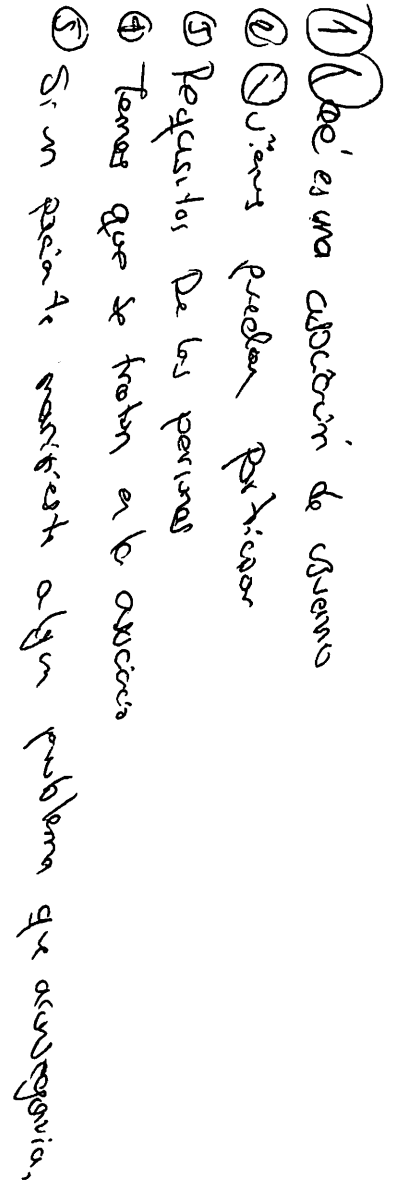 ① Qué es una asociación de usuarios
② Quienes pueden participar
③ Requisitos De las personas
④ Temas que se tratan en la asociación
⑤ Si un paciente manifiesta algun problema que